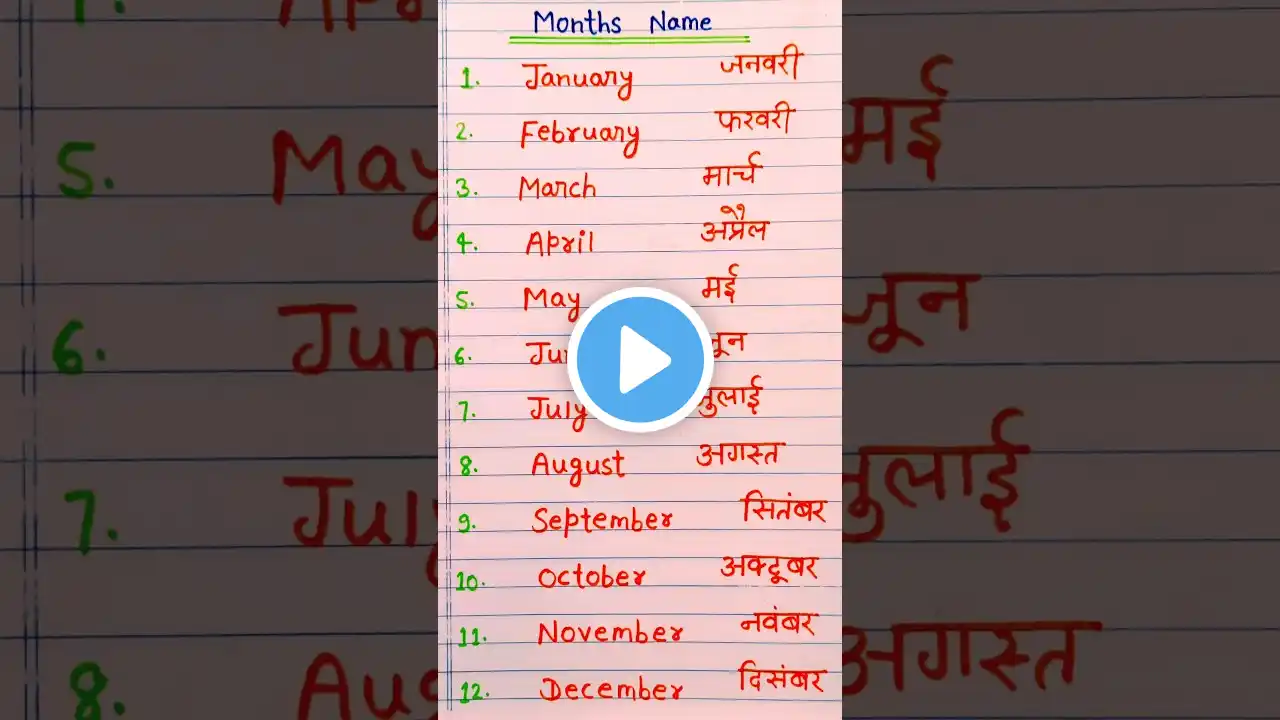 Months Name
1. January जनवरी
2. February फरवरी
3. March मार्च
4. April अप्रैल
5. May मई
6. जून
7. July जुलाई
8. August अगस्त
9. September सितंबर
10. October अक्टूबर
11. November नवंबर
12. December दिसंबर